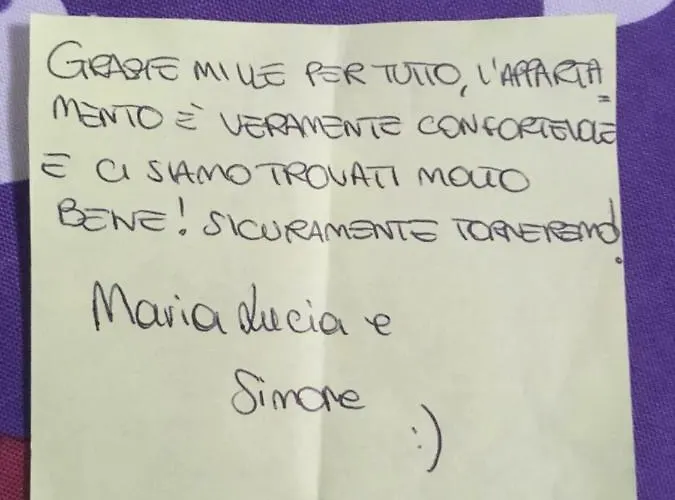 GRAZIE MILLE PER TUTTO, L'APPARTA=
MENTO È VERAMENTE CONFORTEVOLE
E CI SIAMO TROVATI MOLTO
BENE! SICURAMENTE TORNEREMO!
Maria Lucia e
Simone
:)